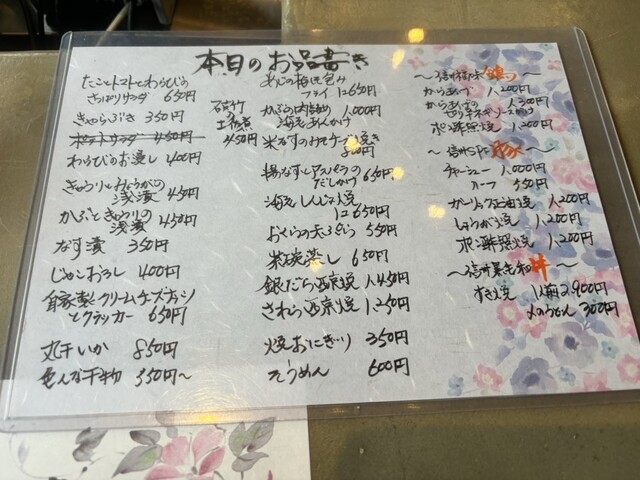 本日のお品書き
たことトマトとわらびの
さっぱりサラダ 650円
きゃらぶき 350円
ポテトサラダ 450円
わらびのお浸し 400円
きゅうりとみょうがの
浅漬 450円
かぶときゅうりの
浅漬 450円
なす漬 350円
じゃこおろし 400円
自家製クリームチーズ
とクラッカー 650円
丸干いか 850円
色んな干物 550円〜
450円
あじの梅しそ包み
フライ 1ケ650円
かぶらの肉詰め 1,000円
海老あんかけ
米なすのみそチーズ焼き
800円
揚なすとアスパラの
だしがけ 650円
海老しんじょ焼
1ケ650円
おくらの天ぷら 550円
茶碗蒸し 650円
銀だら西京焼 1,450円
さわら西京焼 1,250円
焼おにぎり 350円
そうめん 600円
からあげ 1,200円
からあげの 1,300円
ポン酢照焼 1,200円
〜信州SPF豚〜
チャーシュー 1,000円
ハーフ 550円
ガーリック正油焼 1,200円
しょうが焼 1,200円
ポン酢照焼 1,200円
〜信州黒毛和牛〜
すき焼 1人前2,900円
〆のうどん 300円